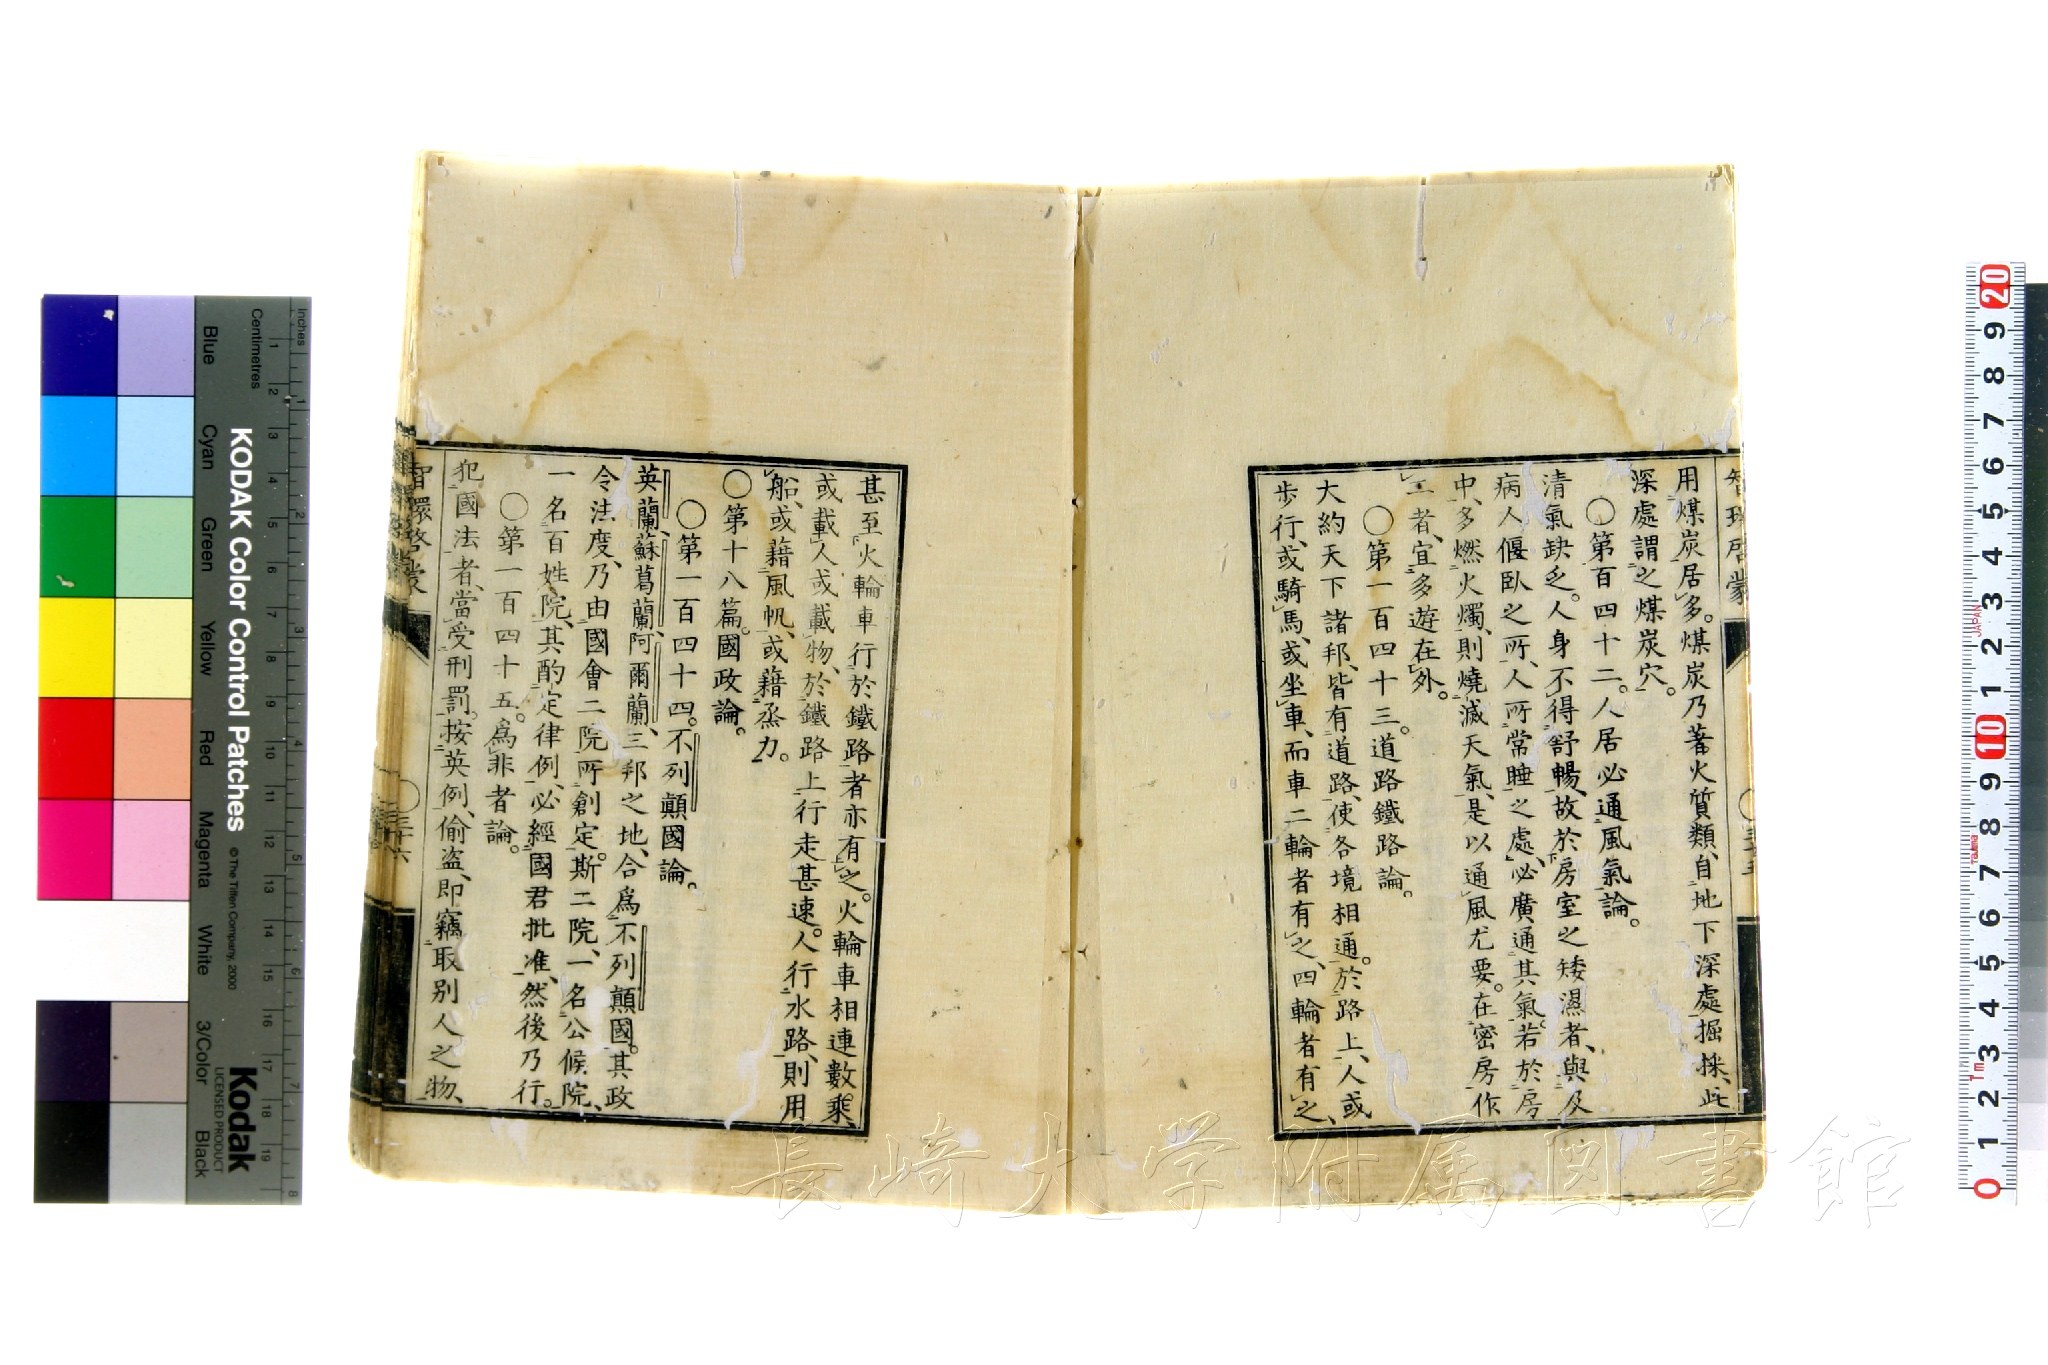 智環啓蒙
三十五
用煤炭居多。煤炭乃蓄火質類、自地下深處掘採、此
深處謂之煤炭穴。
〇第百四十二。人居必通風氣論。
清氣缺乏。人身不得舒暢、故於房室之矮濕者、與及
病人偃臥之所、人所常睡之處、必廣通其氣。若於房
中、多燃火燭、則燒滅天氣、是以通風尤要。在密房作
工者、宜多遊在外。
〇第一百四十三。道路鐵路論。
大約天下諸邦、皆有道路、使各境相通。於路上、人或
步行、或騎馬、或坐車、而車二輪者有之、四輪者有之、
甚至火輪車行於鐵路者亦有之。火輪車相連數乘、
或載人或載物、於鐵路上行走甚速。人行水路、則用
船、或藉風帆、或藉烝力。
〇第十八篇。國政論。
〇第一百四十四。不列顛國論。
英蘭、蘇葛蘭、阿爾蘭、三邦之地、合爲不列顛國。其政
令法度、乃由國會二院所創定。斯二院、一名公候院、
一名百姓院、其酌定律例、必經國君批准、然後乃行。
〇第一百四十五。爲非者論。
犯國法者、當受刑罰。按英例、偷盜、即竊取別人之物、
智環啓蒙
三十六
長崎大学附属図書館
Inches
Centimetres
Blue
Cyan
Green
Yellow
Red
Magenta
White
3/Color
Black
KODAK Color Control Patches
© The Tiffen Company, 2000
Kodak
LICENSED PRODUCT
1 2 3 4 5 6 7 8 9 10 11 12 13 14 15 16 17 18 19
1 2 3 4 5 6 7 8
20 9 8 7 6 5 4 3 2 1 10 9 8 7 6 5 4 3 2 1 0
JAPAN